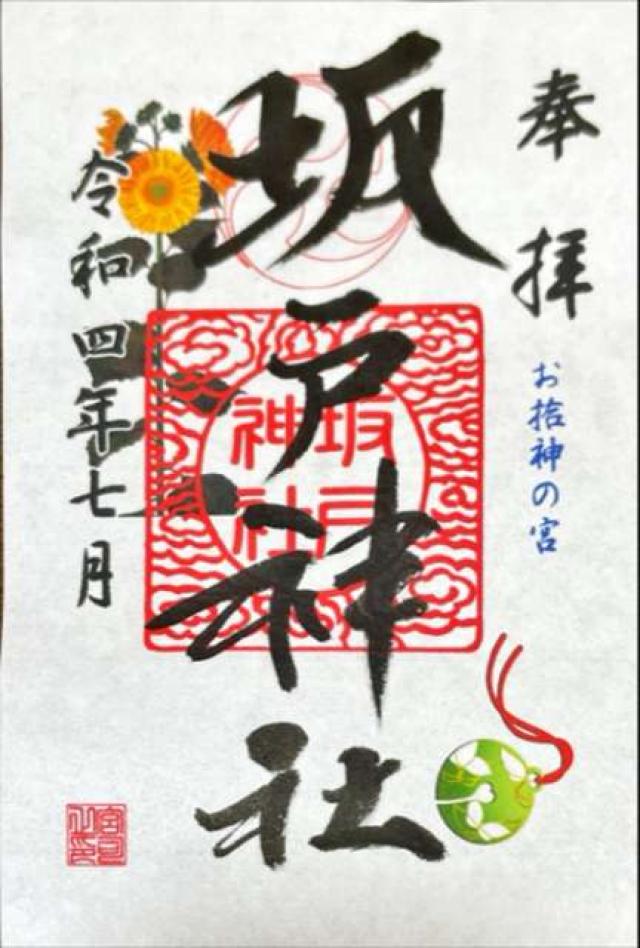 奉拝
お捨神の宮
坂戸神社
坂戸
神社
令和四年七月
宮司之印